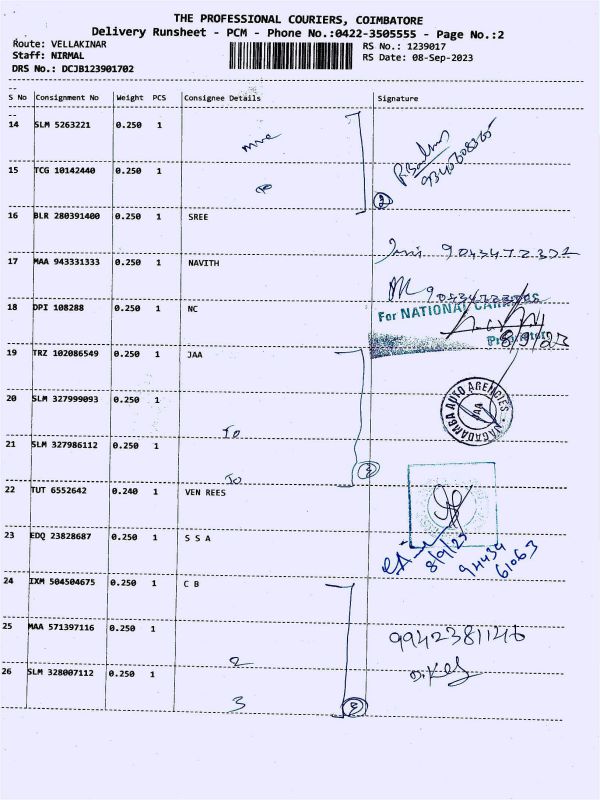 THE PROFESSIONAL COURIERS, COIMBATORE
Delivery Runsheet - PCM - Phone No.:0422-3505555 - Page No.:2
Route: VELLAKINAR
RS No.: 1239017
Staff: NIRMAL
RS Date: 08-Sep-2023
DRS No.: DCJB123901702
S No Consignment No Weight PCS Consignee Details Signature
14 SLM 5263221 0.250 1
15 TCG 10142440 0.250 1
2
16 BLR 280391400 0.250 1 SREE
17 MAA 943331333 0.250 1 NAVITH
18 DPI 108288 0.250 1 NC
For NATIONAL
8/9/23
19 TRZ 102086549 0.250 1 JAA
20 SLM 327999093 0.250 1
JAGADAMBA AUTO AGENCIES
JAA
21 SLM 327986112 0.250 1
22 TUT 6552642 0.240 1 VEN REES
23 EDQ 23828687 0.250 1 S S A
8/9/23
94439
61063
24 IXM 504504675 0.250 1 C B
25 MAA 571397116 0.250 1
9942381146
2
26 SLM 328007112 0.250 1
3